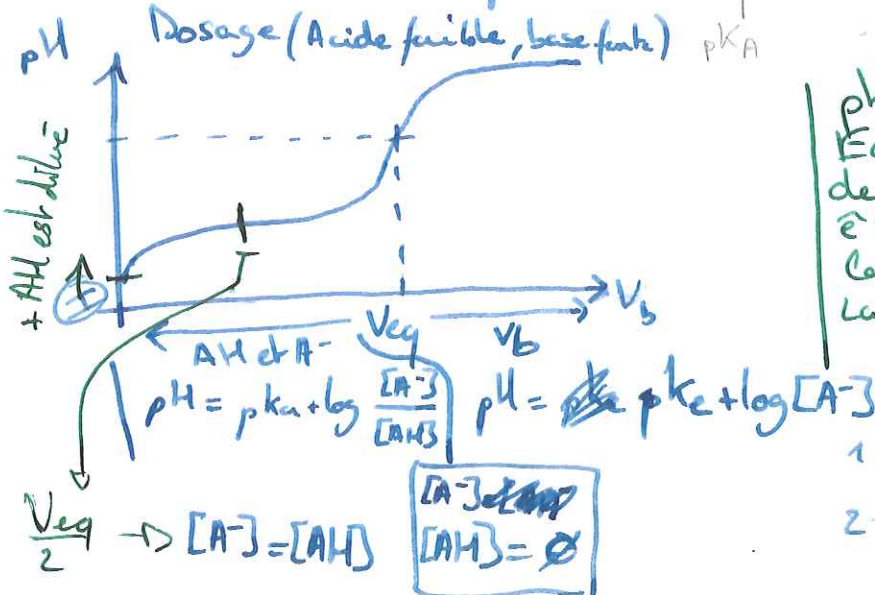 Dosage (Acide faible, base forte)
pKA
pH
+ AH est dilué
Veq
Vb
AH et A-
Vb
pH = pka + log [A-]/[AH]
pH = pke + log [A-]
Veq/2 → [A-] = [AH]
[A-]
[AH] = ø
pH
de
ê
1
2